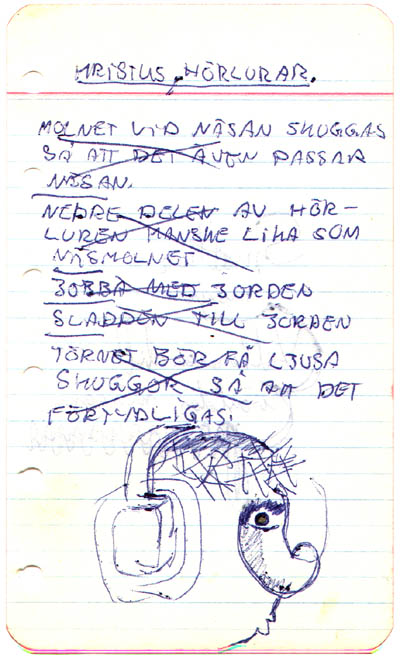 KRISTUS HÖRLURAR.
MOLNET VID NÄSAN SKUGGAS
SÅ ATT DET ÄVEN PASSAR
NÄSAN.
NEDRE DELEN AV HÖR-
LUREN KANSKE LIKA SOM
NÄSMOLNET
JOBBA MED JORDEN
SLADDEN TILL JORDEN
TÖRNET BÖR FÅ LJUSA
SKUGGOR SÅ ATT DET
FÖRTYDLIGAS.